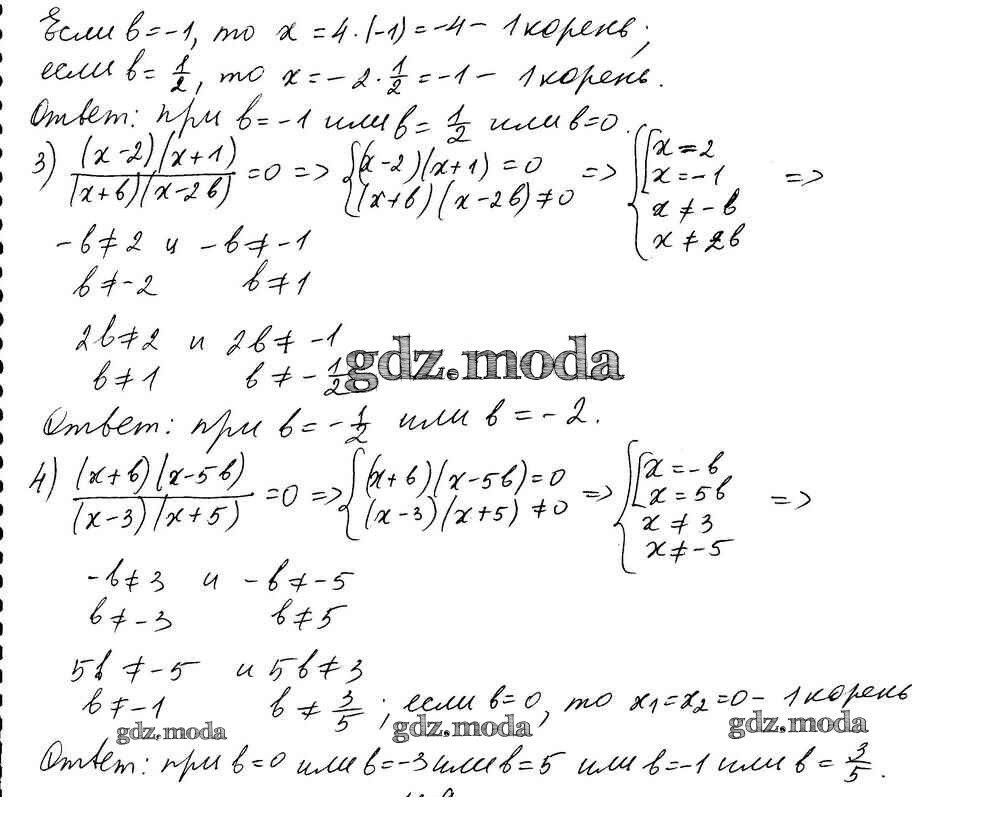 Если b = -1, то x = 4·(-1) = -4 - 1 корень;
если b = 1/2, то x = -2·1/2 = -1 - 1 корень.
Ответ: при b = -1 или b = 1/2 или b = 0.
3) (x-2)(x+1)/(x+b)(x-2b) = 0 => {(x-2)(x+1) = 0 (x+b)(x-2b) ≠ 0 => {[x = 2 x = -1 x ≠ -b x ≠ 2b =>
-b ≠ 2 и -b ≠ -1
b ≠ -2 b ≠ 1
2b ≠ 2 и 2b ≠ -1
b ≠ 1 b ≠ -1/2
gdz.moda
Ответ: при b = -1/2 или b = -2.
4) (x+b)(x-5b)/(x-3)(x+5) = 0 => {(x+b)(x-5b) = 0 (x-3)(x+5) ≠ 0 => {[x = -b x = 5b x ≠ 3 x ≠ -5 =>
-b ≠ 3 и -b ≠ -5
b ≠ -3 b ≠ 5
5b ≠ -5 и 5b ≠ 3
b ≠ -1 b ≠ 3/5; если b = 0, то x₁ = x₂ = 0 - 1 корень
gdz.moda gdz.moda gdz.moda
Ответ: при b = 0 или b = -3 или b = 5 или b = -1 или b = 3/5.